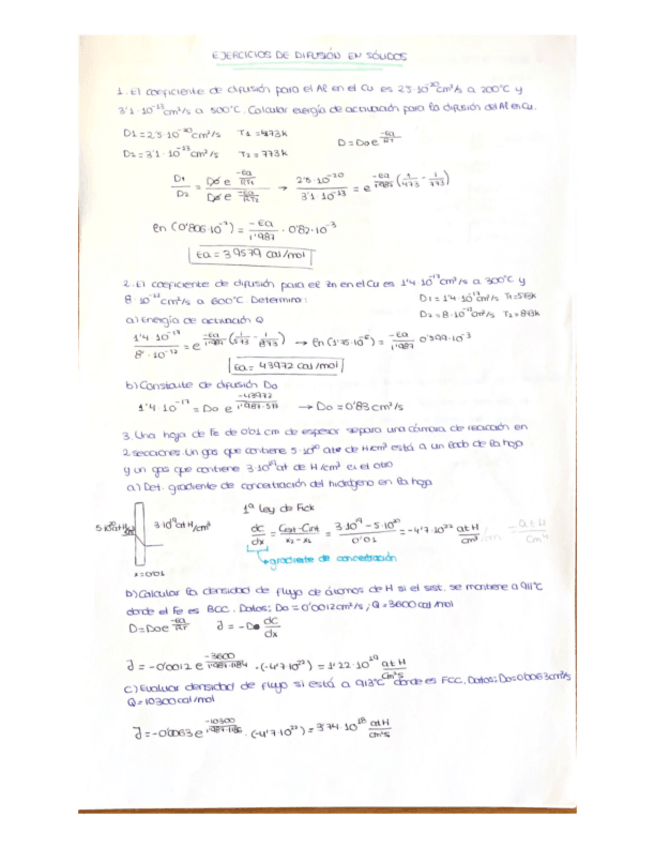 EJERCICIOS DE DIFUSIÓN EN SÓLIDOS
1. El coeficiente de difusión para el Al en el Cu es 2'5·10⁻²⁰ cm²/s a 200°C y
3'1·10⁻¹³ cm²/s a 500°C. Calcular energía de activación para la difusión del Al en Cu.
D1 = 2'5·10⁻²⁰ cm²/s T1 = 473k
D = Do e^(-Ea/RT)
D2 = 3'1·10⁻¹³ cm²/s T2 = 773k
D1/D2 = Do e^(-Ea/RT1) / Do e^(-Ea/RT2) → 2'5·10⁻²⁰ / 3'1·10⁻¹³ = e^(-Ea/1'987 (1/473 - 1/773))
en (0'806·10⁻⁷) = -Ea/1'987 · 0'82·10⁻³
Ea = 39579 cal/mol
2. El coeficiente de difusión para el Zn en el Cu es 1'4·10⁻¹⁷ cm²/s a 300°C y
8·10⁻¹² cm²/s a 600°C. Determina:
D1 = 1'4·10⁻¹⁷ cm²/s T1 = 573k
D2 = 8·10⁻¹² cm²/s T2 = 873k
a) Energía de activación Q
1'4·10⁻¹⁷ / 8·10⁻¹² = e^(-Ea/1'987 (1/573 - 1/873)) → en (1'75·10⁻⁶) = -Ea/1'987 0'599·10⁻³
Ea = 43972 cal/mol
b) Constante de difusión Do
1'4·10⁻¹⁷ = Do e^(-43972/1'987·573) → Do = 0'83 cm²/s
3. Una hoja de Fe de 0'01 cm de espesor separa una cámara de reacción en
2 secciones. Un gas que contiene 5·10²⁰ at de H/cm³ está a un lado de la hoja
y un gas que contiene 3·10¹⁹ at de H/cm³ en el otro
a) Det. gradiente de concentración del hidrógeno en la hoja
1ª Ley de Fick
5·10²⁰ at H/cm³ 3·10¹⁹ at H/cm³
dc/dx = Cext - Cint / x2 - x1 = 3·10¹⁹ - 5·10²⁰ / 0'01 = -4'7·10²² at H/cm³/cm -at H/cm⁴
gradiente de concentración
x = 0'01
b) Calcular la densidad de flujo de átomos de H si el sist. se mantiene a 911°C
donde el Fe es BCC. Datos: Do = 0'0012 cm²/s; Q = 3600 cal/mol
D = Do e^(-Ea/RT) J = -D dc/dx
J = -0'0012 e^(-3600/1'987·1184) · (-4'7·10²²) = 1'22·10¹⁹ at H/cm²s
c) Evaluar densidad de flujo si está a 913°C donde es FCC. Datos: Do = 0'0063 cm²/s
Q = 10300 cal/mol
J = -0'0063 e^(-10300/1'987·1186) · (-4'7·10²²) = 3'74·10¹⁸ at H/cm²s